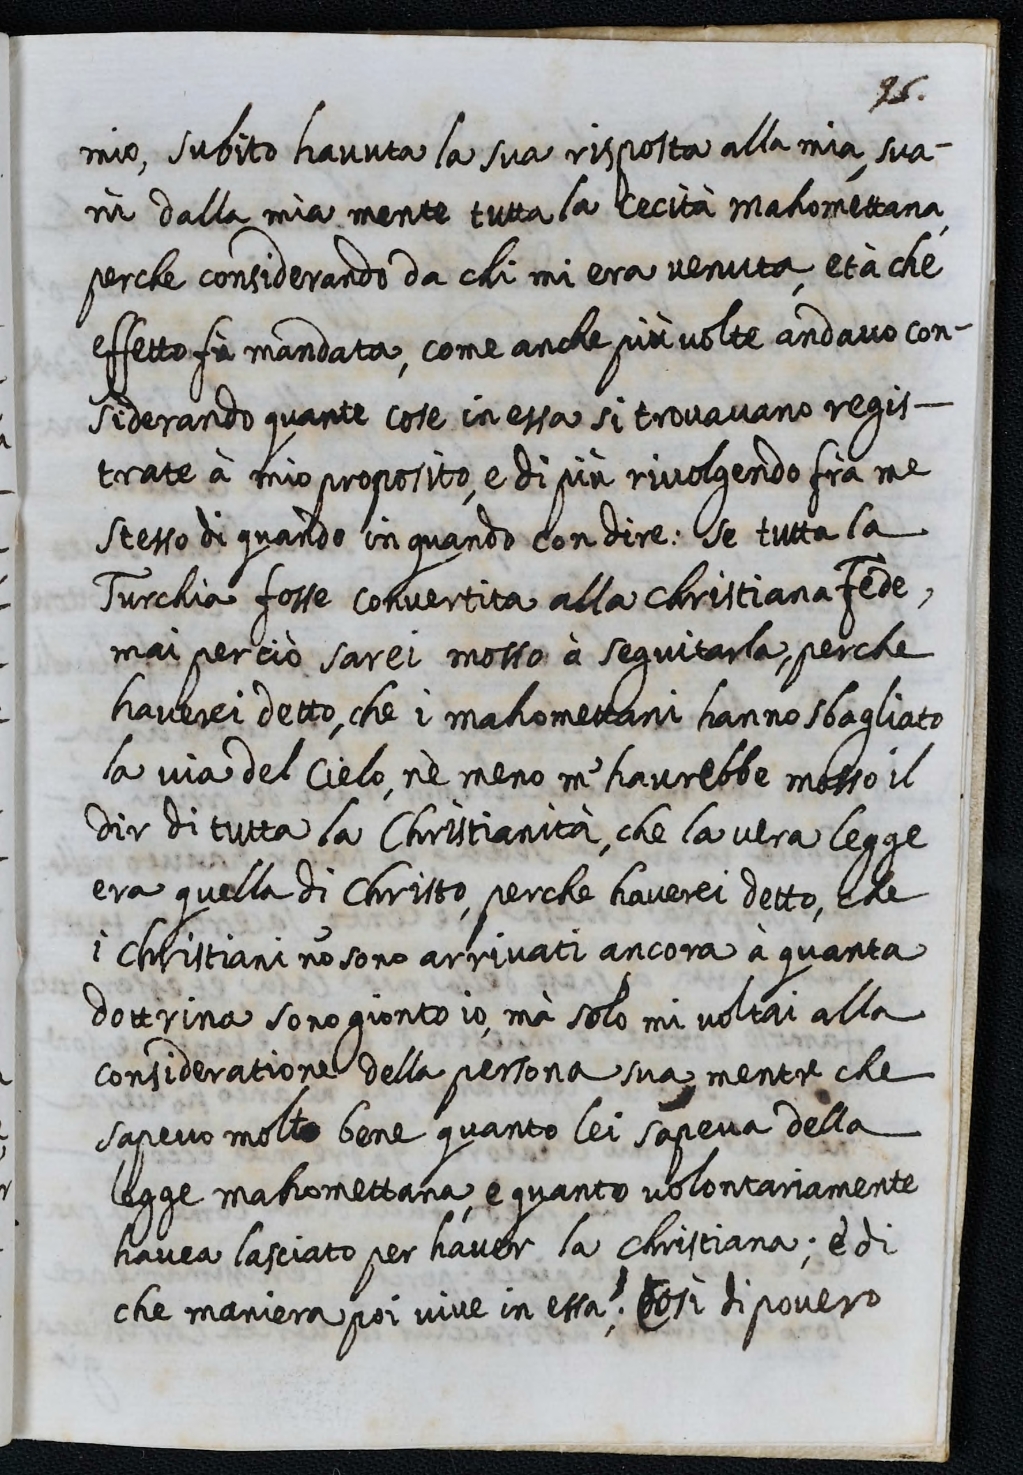 95.
mio, subito havuta la sua risposta alla mia, sua-
nì dalla mia mente tutta la cecità Mahomettana,
perche considerando da chi mi era venuta, et à che
effetto fù mandata, come anche più volte andavo con-
siderando quante cose in essa si trovavano regis-
trate à mio proposito, e di più rivolgendo frà me
stesso di quando in quando con dire: Se tutta la
Turchia fosse convertita alla christiana Fede,
mai perciò sarei mosso à seguitarla, perche
haverei detto, che i mahomettani hanno sbagliato
la via del Cielo, nè meno m'havrebbe mosso il
dir di tutta la Christianità, che la vera legge
era quella di Christo, perche haverei detto, che
i Christiani nõ sono arrivati ancora à quanta
dottrina sono gionto io, mà solo mi voltai alla
consideratione della persona sua, mentre che
sapevo molto bene quanto lei sapeva della
legge mahomettana, e quanto volontariamente
havea lasciato per haver la christiana; è di
che maniera poi vive in essa! Così di povero